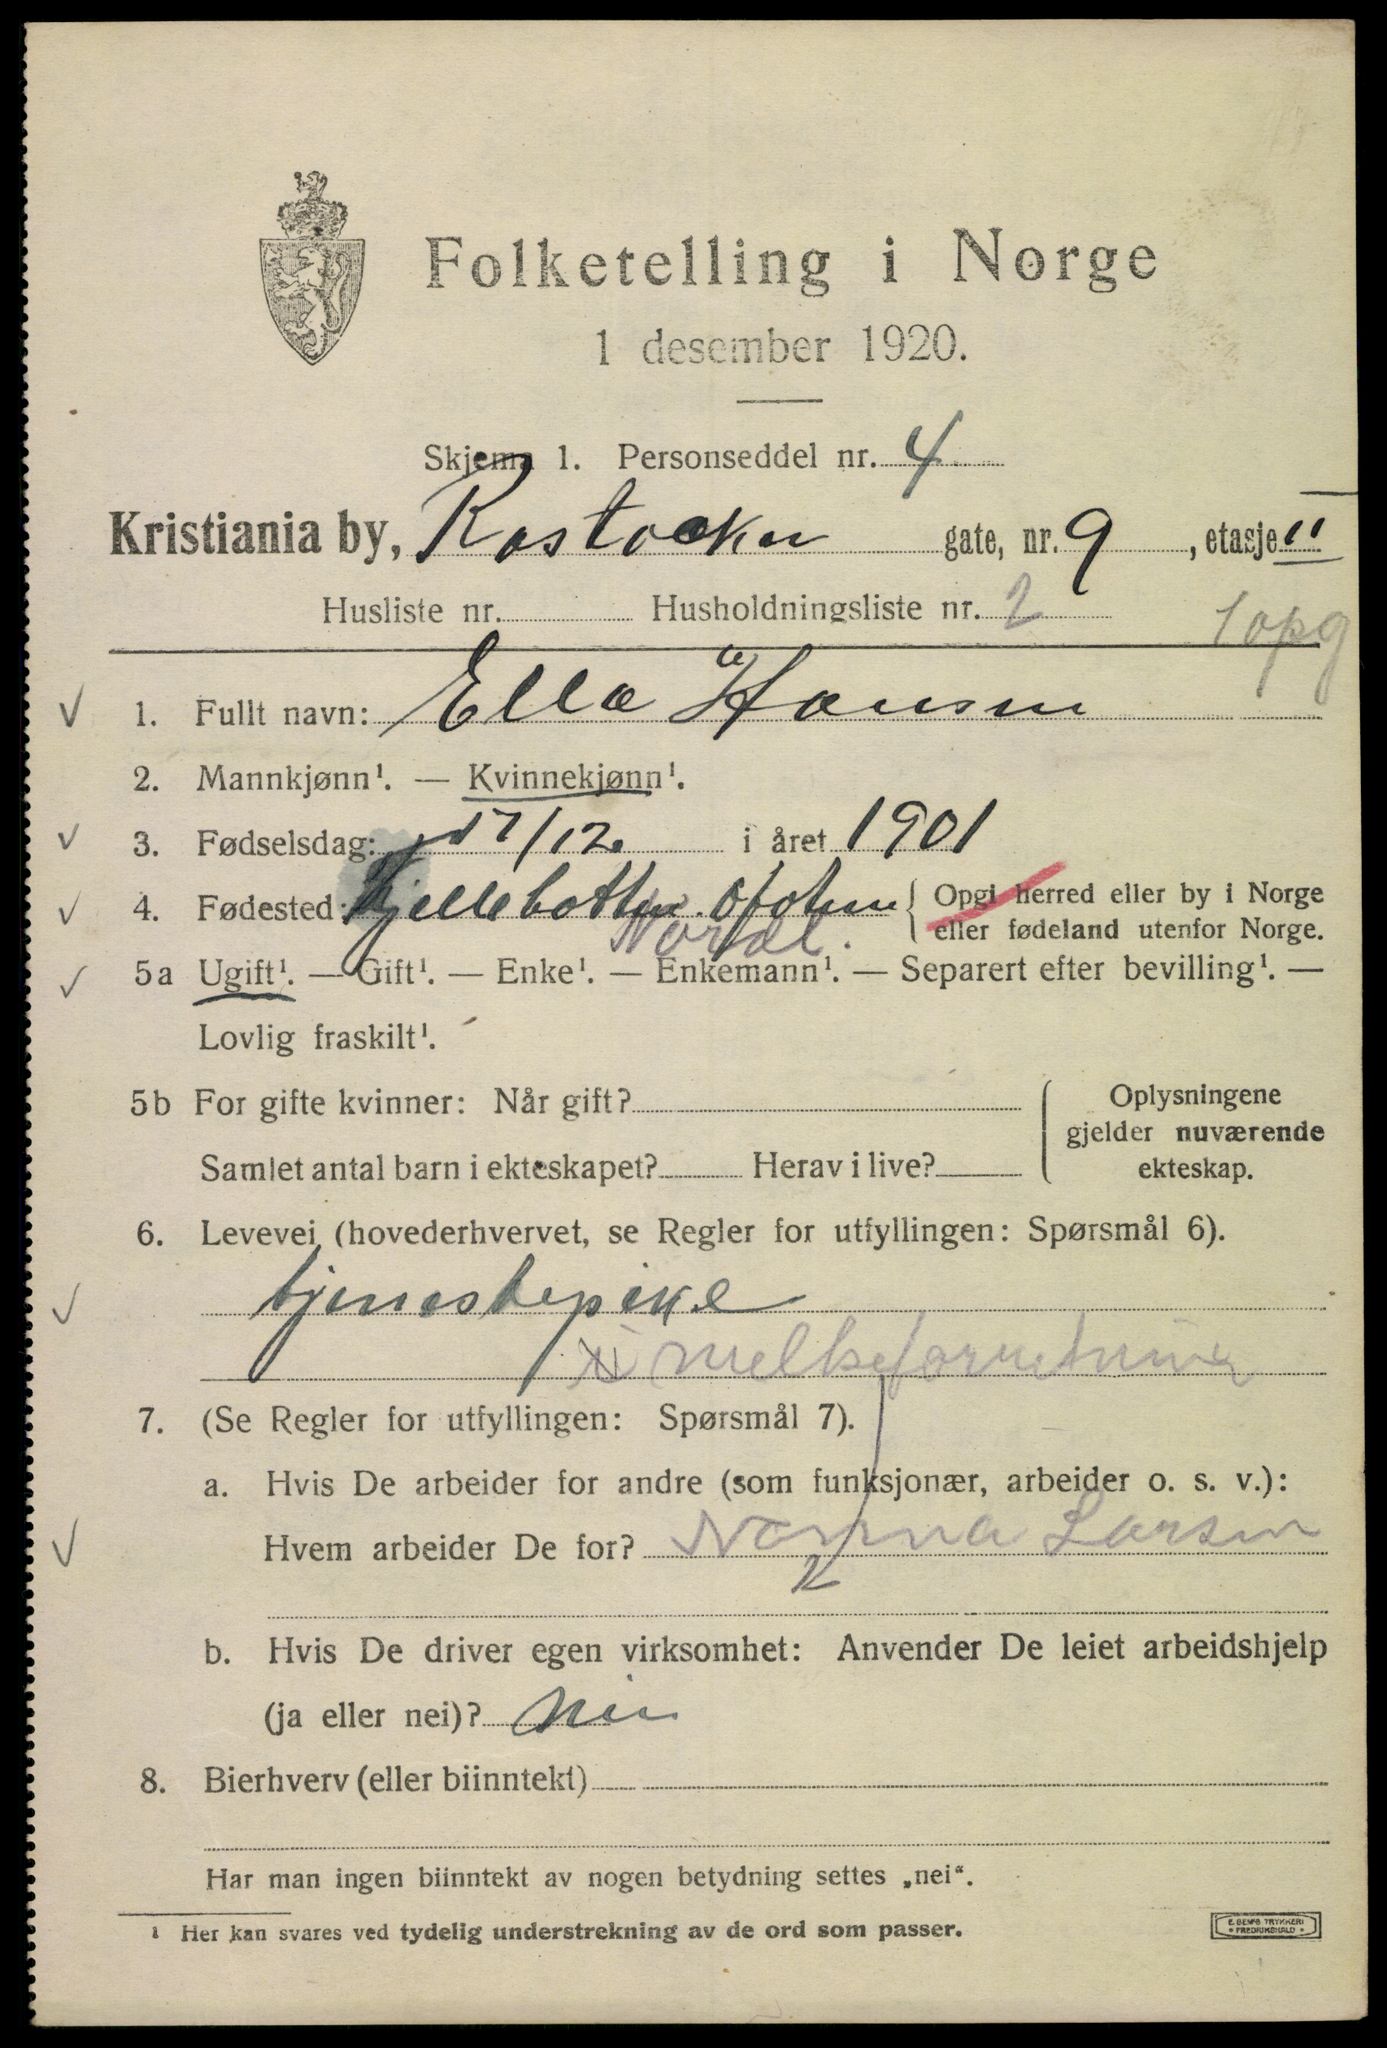 Folketelling i Norge
1 desember 1920.
Skjema 1. Personseddel nr. 4
Kristiania by, Rostocker gate, nr. 9, etasje II
Husliste nr. Husholdningsliste nr. 2 1 opg
1. Fullt navn: Ella Hansen
2. Mannkjønn¹. — Kvinnekjønn¹.
3. Fødselsdag: 17/12 i året 1901
4. Fødested: Kjellebotten Ofoten { Opgi herred eller by i Norge
eller fødeland utenfor Norge.
Nordl.
5a Ugift¹. — Gift¹. — Enke¹. — Enkemann¹. — Separert efter bevilling¹. —
Lovlig fraskilt¹.
5b For gifte kvinner: Når gift? { Oplysningene
gjelder nuværende
Samlet antal barn i ekteskapet? Herav i live? ekteskap.
6. Levevei (hovederhvervet, se Regler for utfyllingen: Spørsmål 6).
tjenestepike
i melkeforretning
7. (Se Regler for utfyllingen: Spørsmål 7).
a. Hvis De arbeider for andre (som funksjonær, arbeider o. s. v.):
Hvem arbeider De for? Nanna Larsen
b. Hvis De driver egen virksomhet: Anvender De leiet arbeidshjelp
(ja eller nei)? nei
8. Bierhverv (eller biinntekt)
Har man ingen biinntekt av nogen betydning settes „nei“.
¹ Her kan svares ved tydelig understrekning av de ord som passer.
E. SEM'S TRYKKERI
FREDRIKSHALD